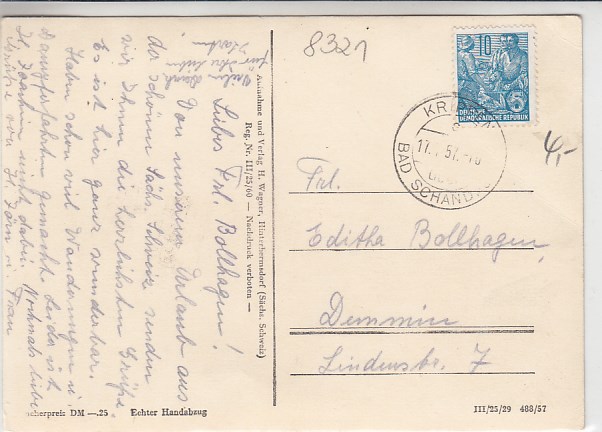 8321
Vielen Dank
für Ihre lieben
Karten
Liebes Frl. Bollhagen!
Von unserem Urlaub aus
der schönen Sächs. Schweiz senden
wir Ihnen die herzlichsten Grüße.
Es ist hier ganz wunderbar.
Haben schon viel Wanderungen u.
Dampferfahrten gemacht. Leider ist
nicht dabei. Nochmals liebe
Grüße von u. Frau
Aufnahme und Verlag H. Wagner, Hinterhermsdorf (Sächs. Schweiz)
Reg. Nr. III/25/60 — Nachdruck verboten —
10
DEUTSCHE
DEMOKRATISCHE REPUBLIK
5
BAD SCHAND
4,-
Frl.
Editha Bollhagen,
Demmin
Lindenstr. 7
cherpreis DM —.25 Echter Handabzug
III/25/29 488/57